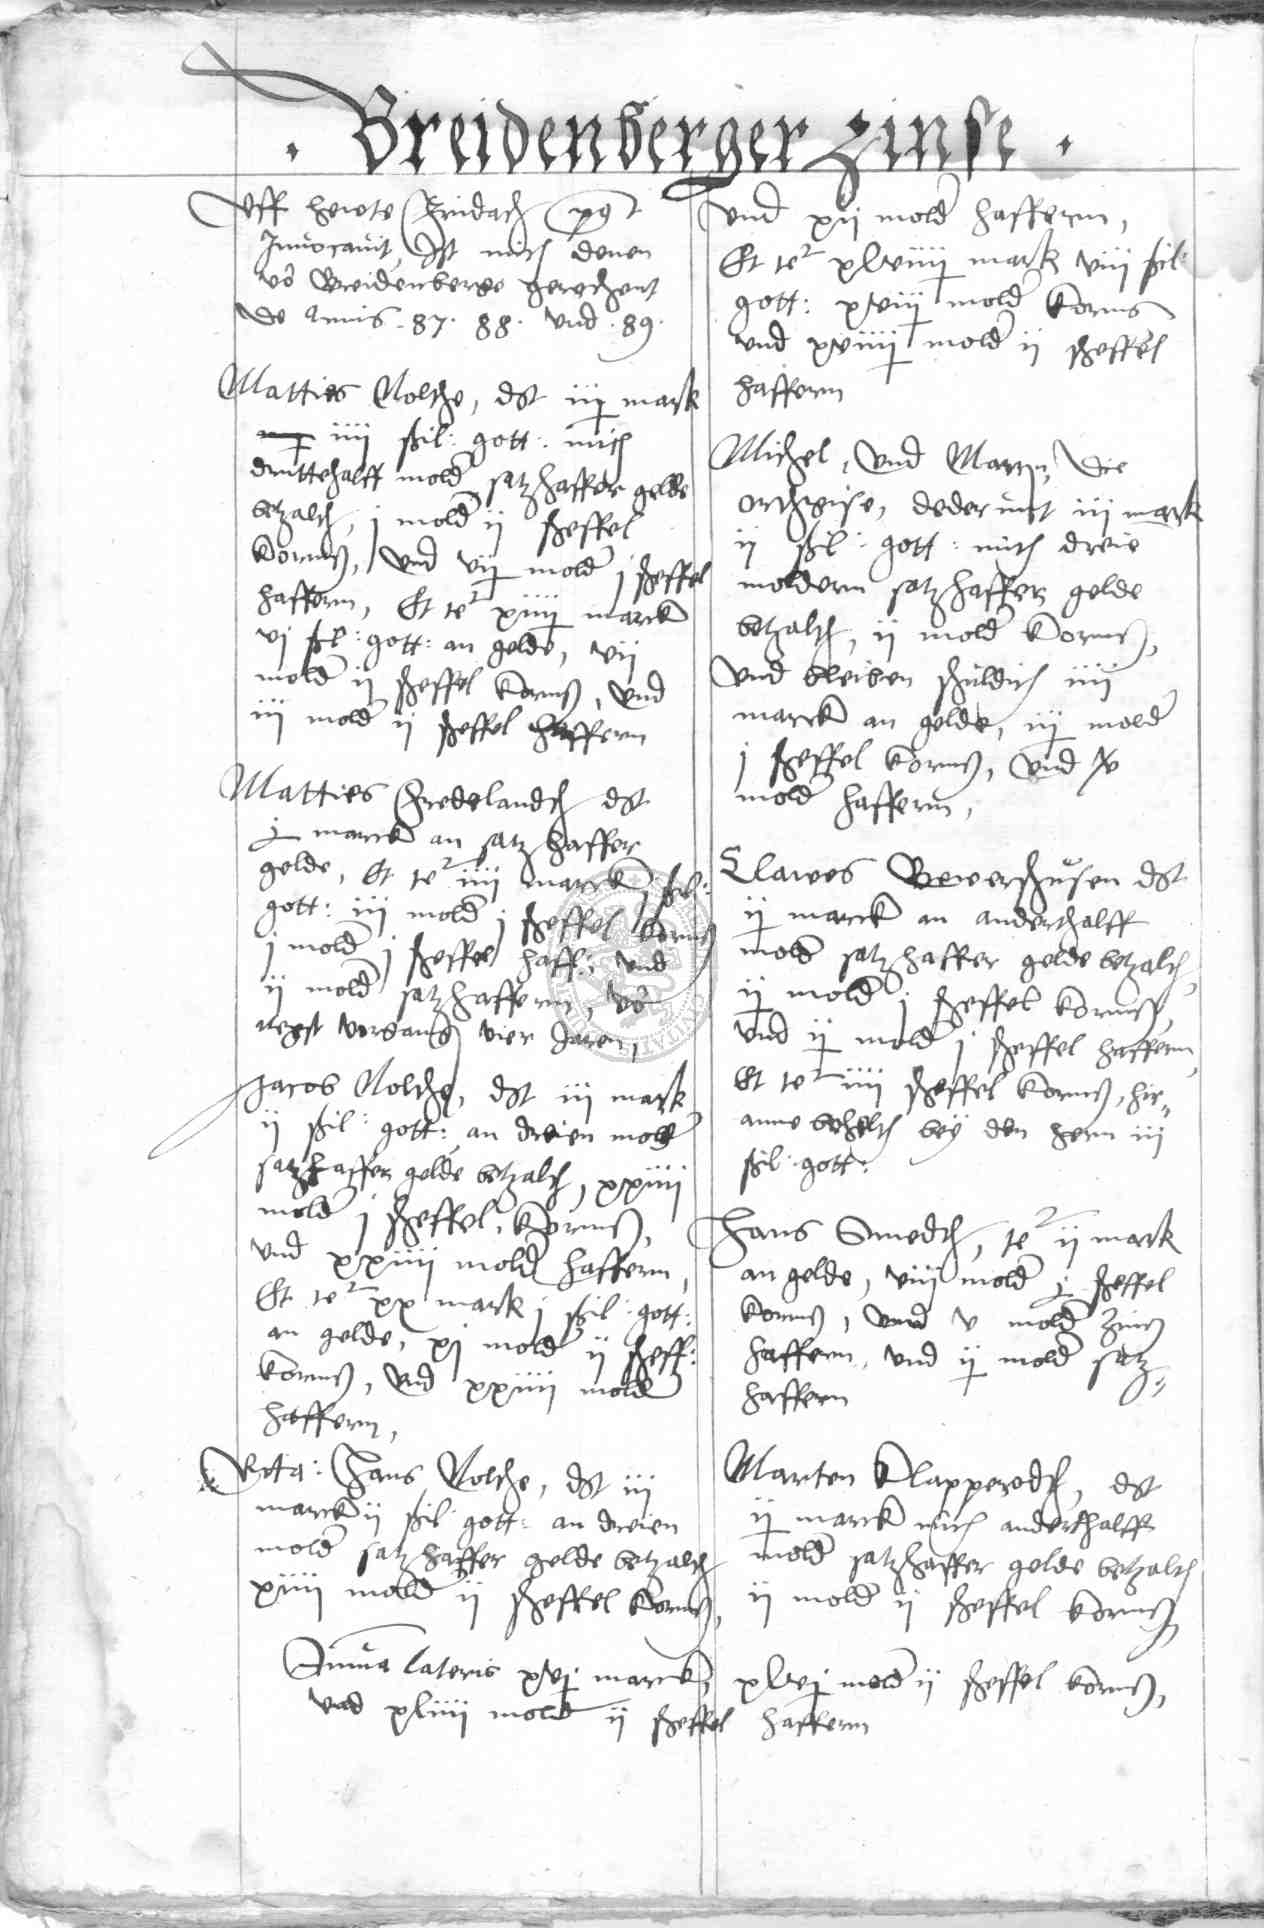 Breidenberger Zinse
Uff hewte Fridach
Invocavit, Ist mith denen
vo Breidenberge gerechent
de Annis . 87 . 88 . und . 89 .
Matties Nolthe, dt iiij mark
iiii ßil : gott : mith
druttehalff mold satzhaffer gelde
betzalth, j mold ij scheffel
korns, und vij mold j scheffel
haffern, Et te2 xiiij marck
vj ßil : gott : an gelde, vij
mold ij scheffel korns, und
iij mold ij scheffel haffern
Matties Fredelandth dt
j marck an satz haffer
gelde, Et te2 iiii marck j ßil :
gott : iij mold j scheffel korns
j mold j scheffel haff : und
ij mold satzhaffern, vo
negst vorgang vier Jaren,
Jacob Nolthe, dt iij mark
ij ßil : gott : an dreien mold
satzhaffer gelde betzalth, xxiiii
mold j scheffel korns,
und xxiiii mold haffern,
Et te2 xx mark j ßil : gott :
an gelde, xj mold ij scheff :
korns, und xxiiii mold
haffern,
Hans Nolthe, dt iij
marck ij ßil gott : an dreien
mold satzhaffer gelde betzalth
xiiii mold ij scheffel korns,
und xij mold haffern,
Et te2 xlviiij mark viij ßil :
gott : xviij mold korns
und xviiij mold ij scheffel
haffern
Michel, und Martin, die
dederunt iij mark
ij ßil : gott : mith dreie
moldern satzhaffer gelde
betzalth, ij mold korns,
und bleiben schuldich iiii
marck an gelde, iij mold
j scheffel korns, und
mold haffern,
Clawes Bewershusen dt
ij marck an anderthalff
mold satzhaffer gelde betzalth,
ij mold j scheffel korns,
und ij mold j scheffel haffern,
Et te2 iiii scheffel korns, hir=
anne behelth bey den hern iij
ßil : gott :
Hans Smedth, te2 ij mark
an gelde, viij mold j scheffel
korns, und v mold Zins
haffern, und ij mold satz=
haffern
Marten Klapperodth, dt
ij marck mith anderthalff
mold satzhaffer gelde betzalth
ij mold ij scheffel korns,
Summa lateris xvj marck, xlvj mold ij scheffel korns,
und xliiii mold ij scheffel haffern